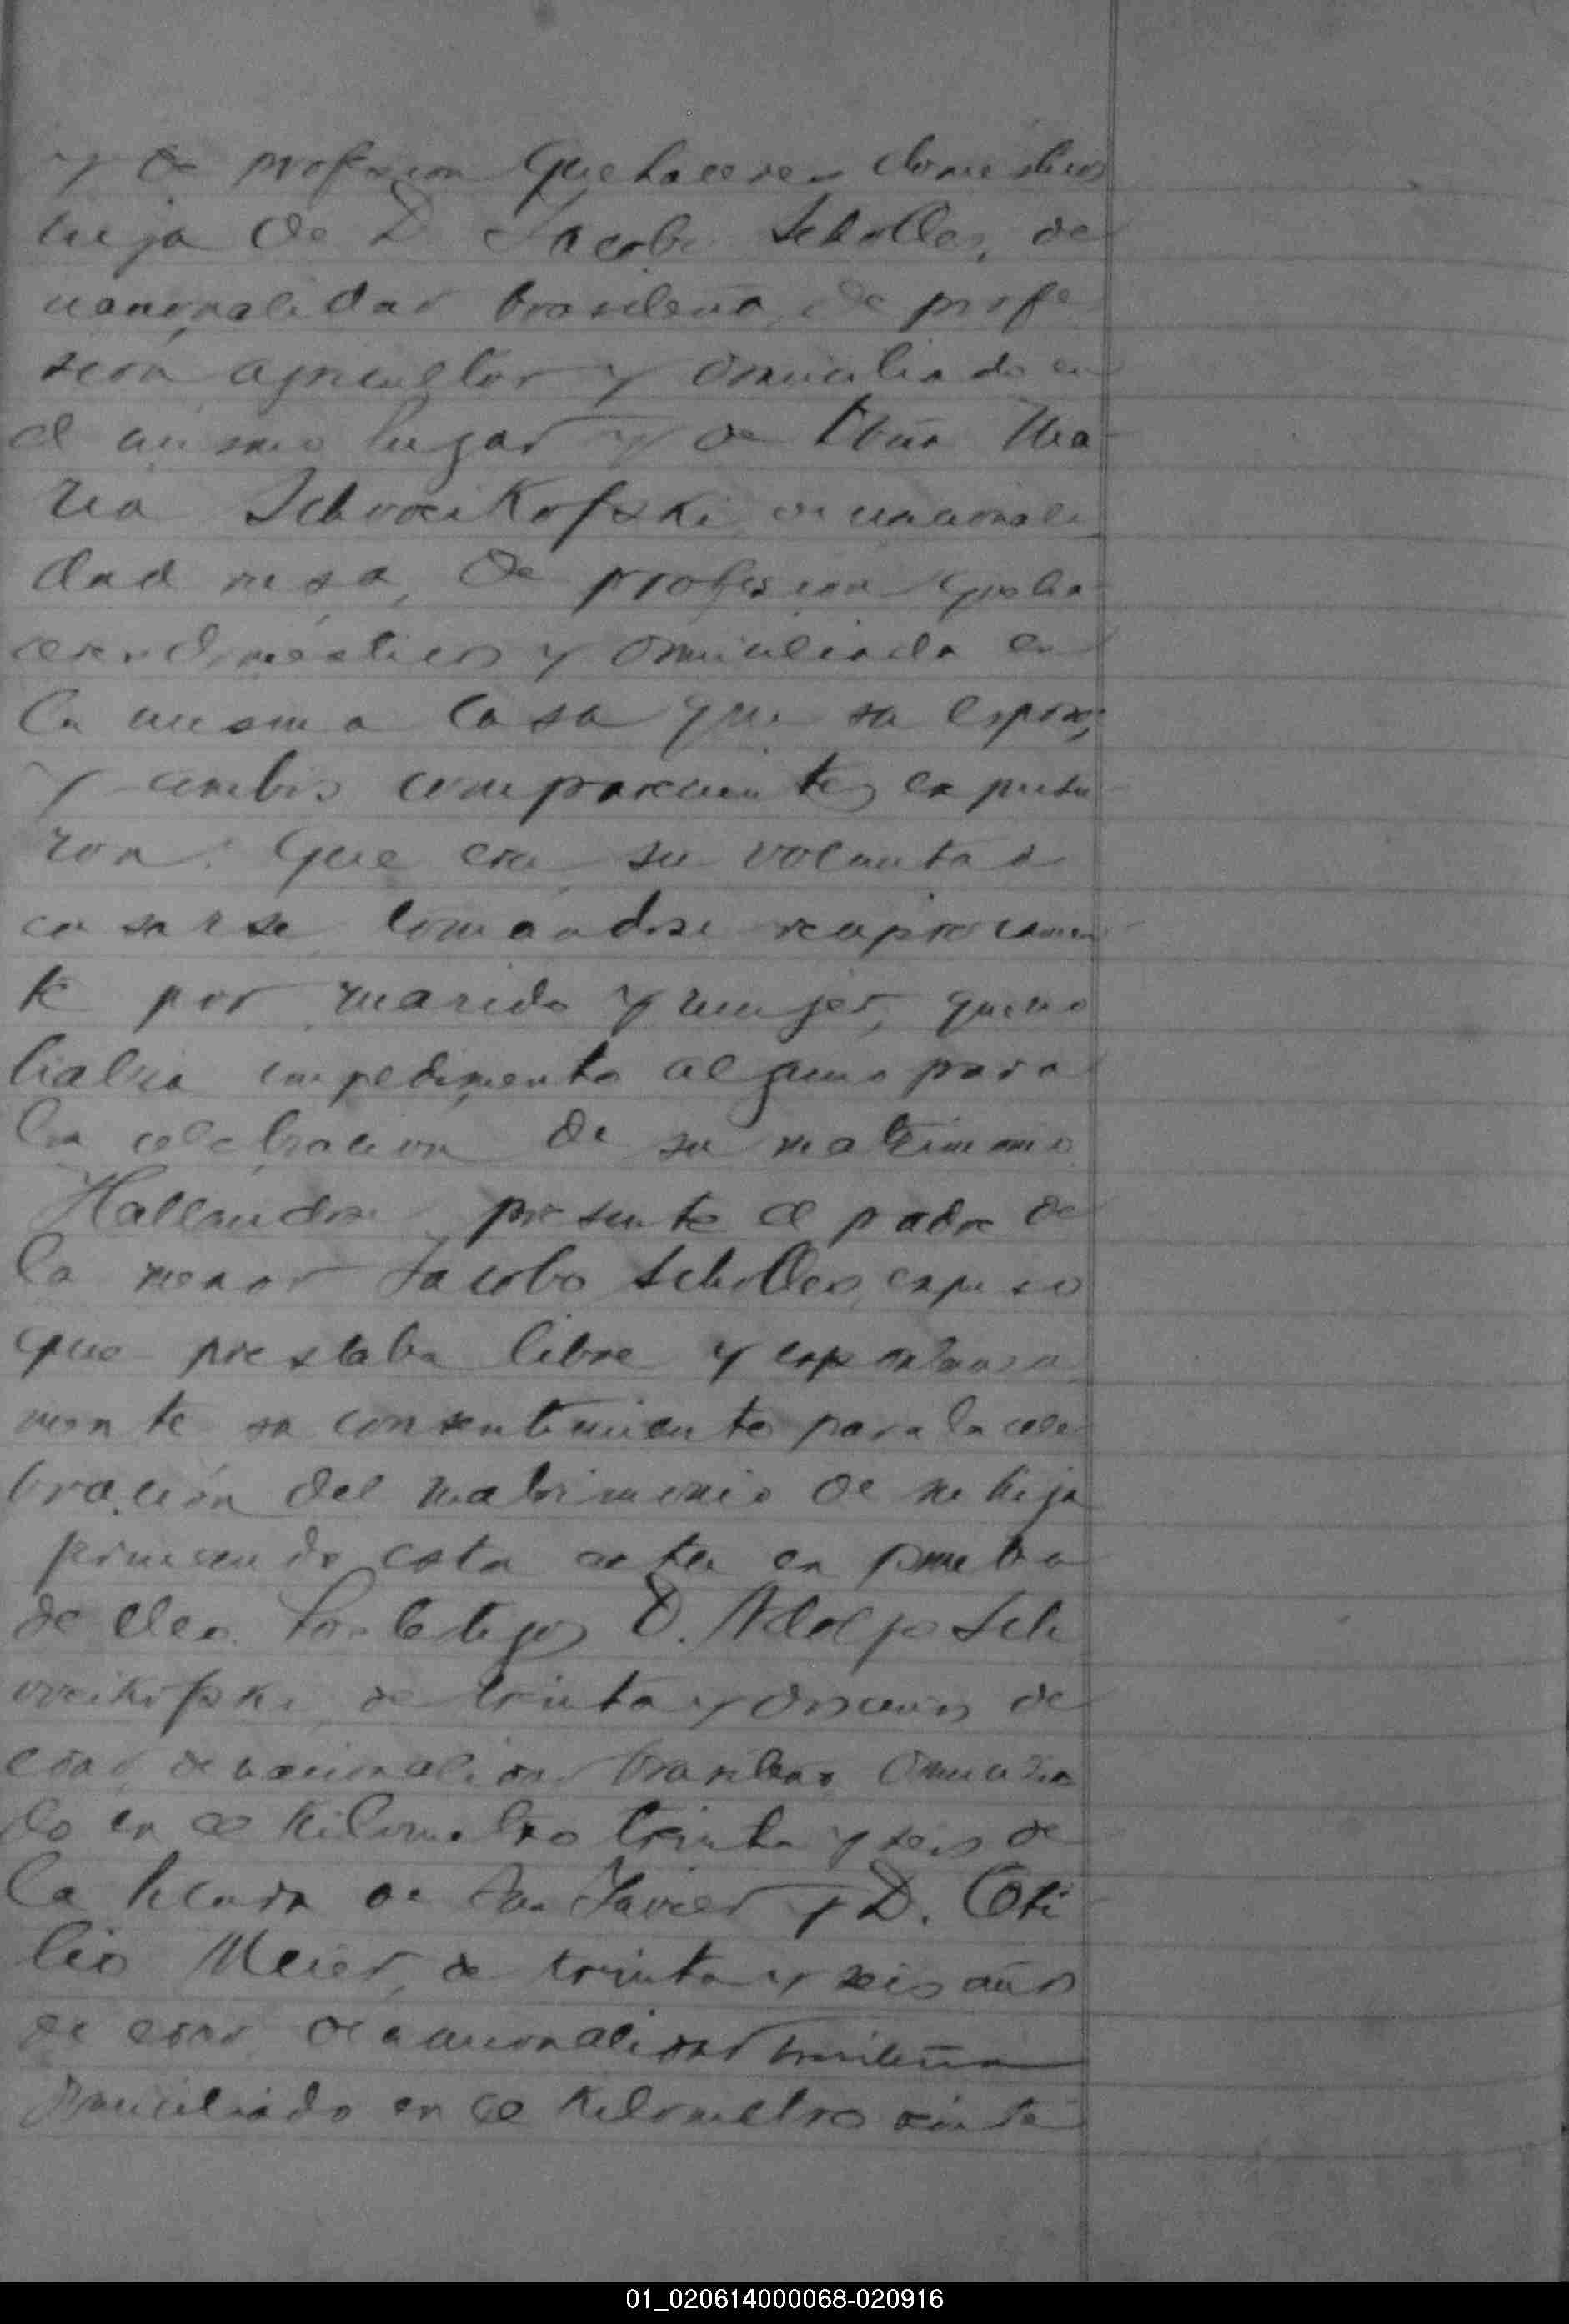 y de profesion quehaceres domesticos
hija de D. Jacobo Scholles, de
nacionalidad brasileña, de profe
sión agricultor y domiciliado en
el mismo lugar y de Doña Ma-
ria Schvocikofski de nacionali
dad rusa, de profesion queha-
ceres domésticos y domiciliada en
la misma casa que su esposo,
y ambos comparecientes expusie-
ron: Que era su voluntad
casarse tomándose reciprocamen
te por marido y mujer, que no
había impedimento alguno para
la celebracion de su matrimonio
Hallandose presente el padre de
la menor Jacobo Scholles, expuso
que prestaba libre y espontanea
mente su consentimiento para la cele
bración del matrimonio de su hija
firmando esta acta en prueba
de ello. Los testigos D. Adolfo Sch
vocikofski, de treinta y dos años de
edad, de nacionalidad brasilera domicilia
do en el kilometro treinta y seis de
la picada de San Javier y D. Oti-
lio Meier, de treinta y seis años
de edad, de nacionalidad brasileña
domiciliado en el kilometro veinte
01_020614000068-020916